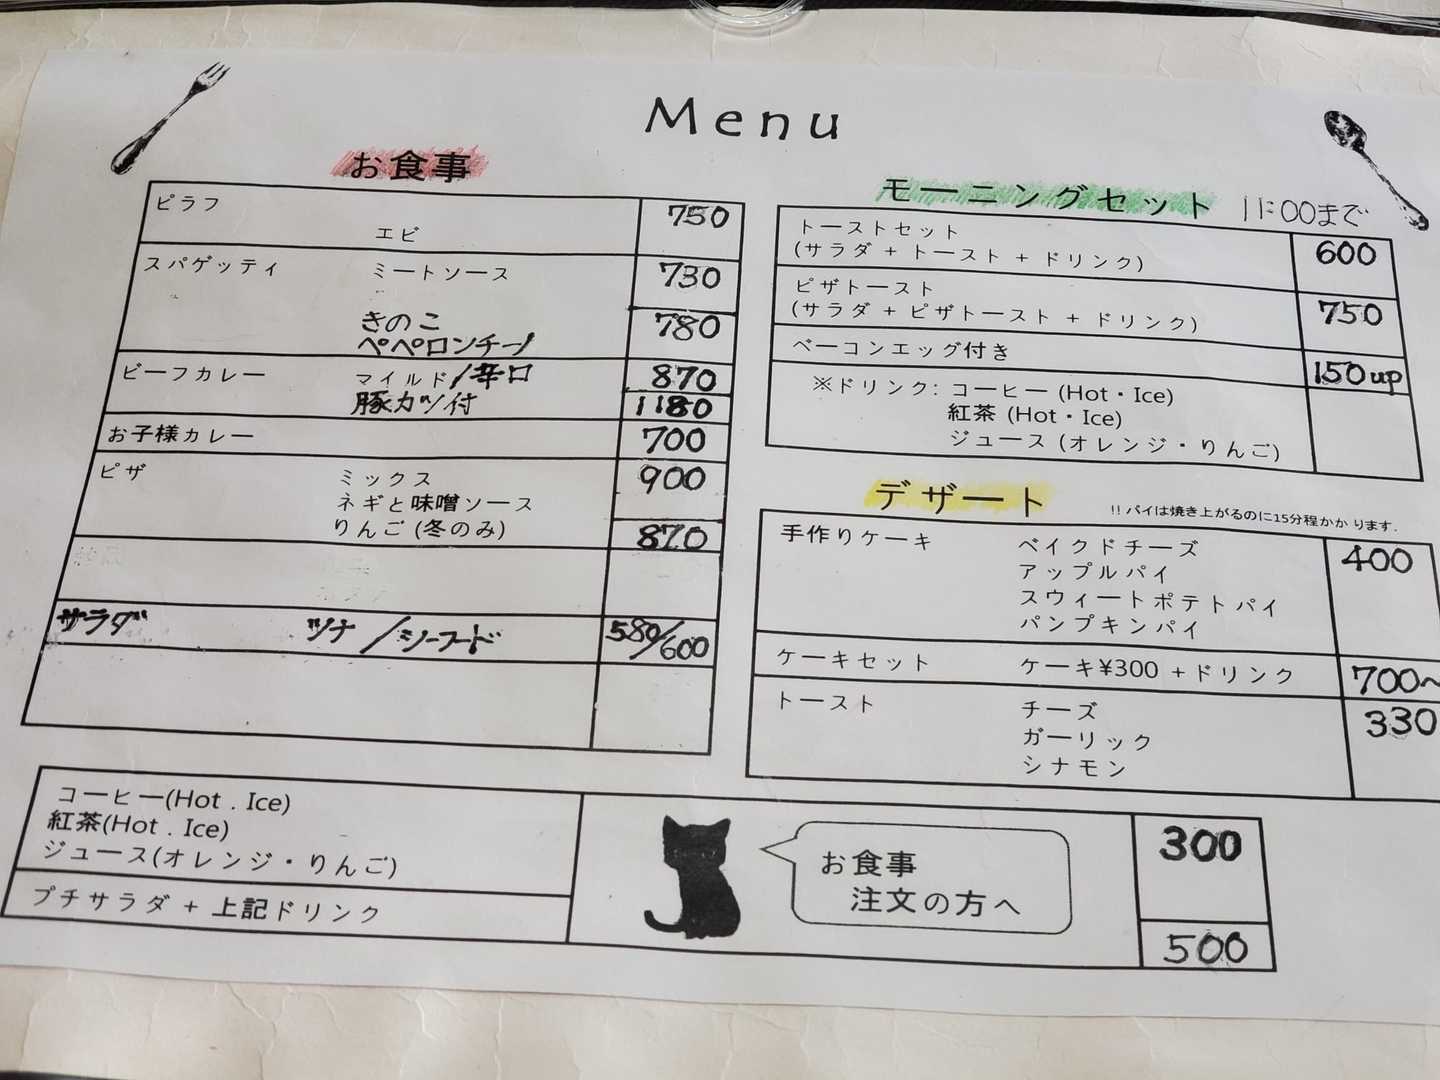 Menu
お食事
ピラフ
エビ 750
スパゲッティ ミートソース 730
きのこ 780
ペペロンチーノ
ビーフカレー マイルド/辛口 870
豚カツ付 1180
お子様カレー 700
ピザ ミックス 900
ネギと味噌ソース
りんご (冬のみ) 870
サラダ ツナ / シーフード 580/600
モーニングセット 11:00まで
トーストセット 600
(サラダ + トースト + ドリンク)
ピザトースト 750
(サラダ + ピザトースト + ドリンク)
ベーコンエッグ付き 150up
※ドリンク: コーヒー (Hot・Ice)
紅茶 (Hot・Ice)
ジュース (オレンジ・りんご)
デザート !! パイは焼き上がるのに15分程かかります.
手作りケーキ ベイクドチーズ 400
アップルパイ
スウィートポテトパイ
パンプキンパイ
ケーキセット ケーキ¥300 + ドリンク 700~
トースト チーズ 330
ガーリック
シナモン
コーヒー(Hot . Ice) 300
紅茶(Hot . Ice)
ジュース(オレンジ・りんご)
プチサラダ + 上記ドリンク 500
お食事
注文の方へ